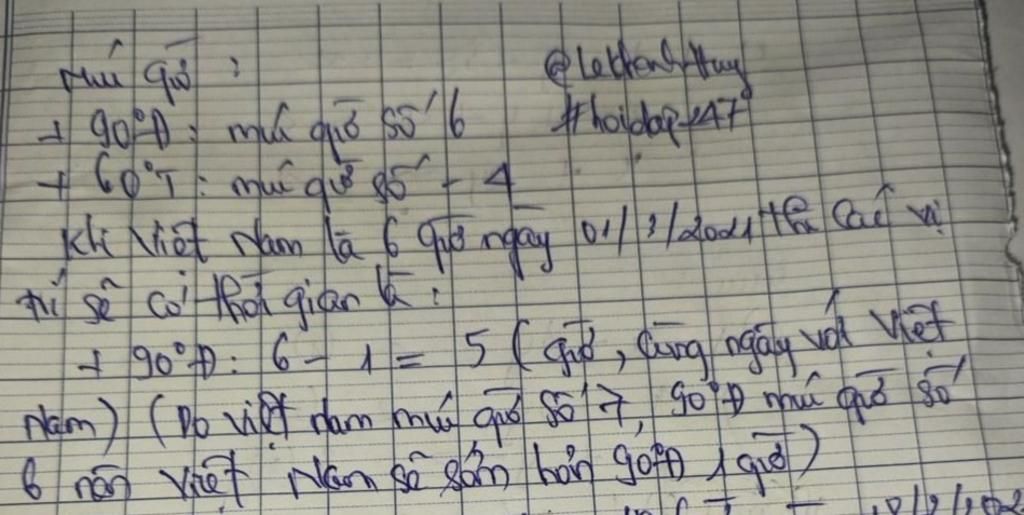 múi giờ :
+ 90°Đ : múi giờ số 6
@LeKhanhHuy
#hoidap247
+ 60°T : múi giờ số - 4
Khi Việt Nam là 6 giờ ngày 01/3/2021 thì các vị
trí sẽ có thời gian là :
+ 90°Đ : 6 - 1 = 5 ( giờ, cùng ngày với Việt
Nam) (Do Việt Nam múi giờ số 7, 90°Đ múi giờ số
6 nên Việt Nam sẽ sớm hơn 90°Đ 1 giờ)